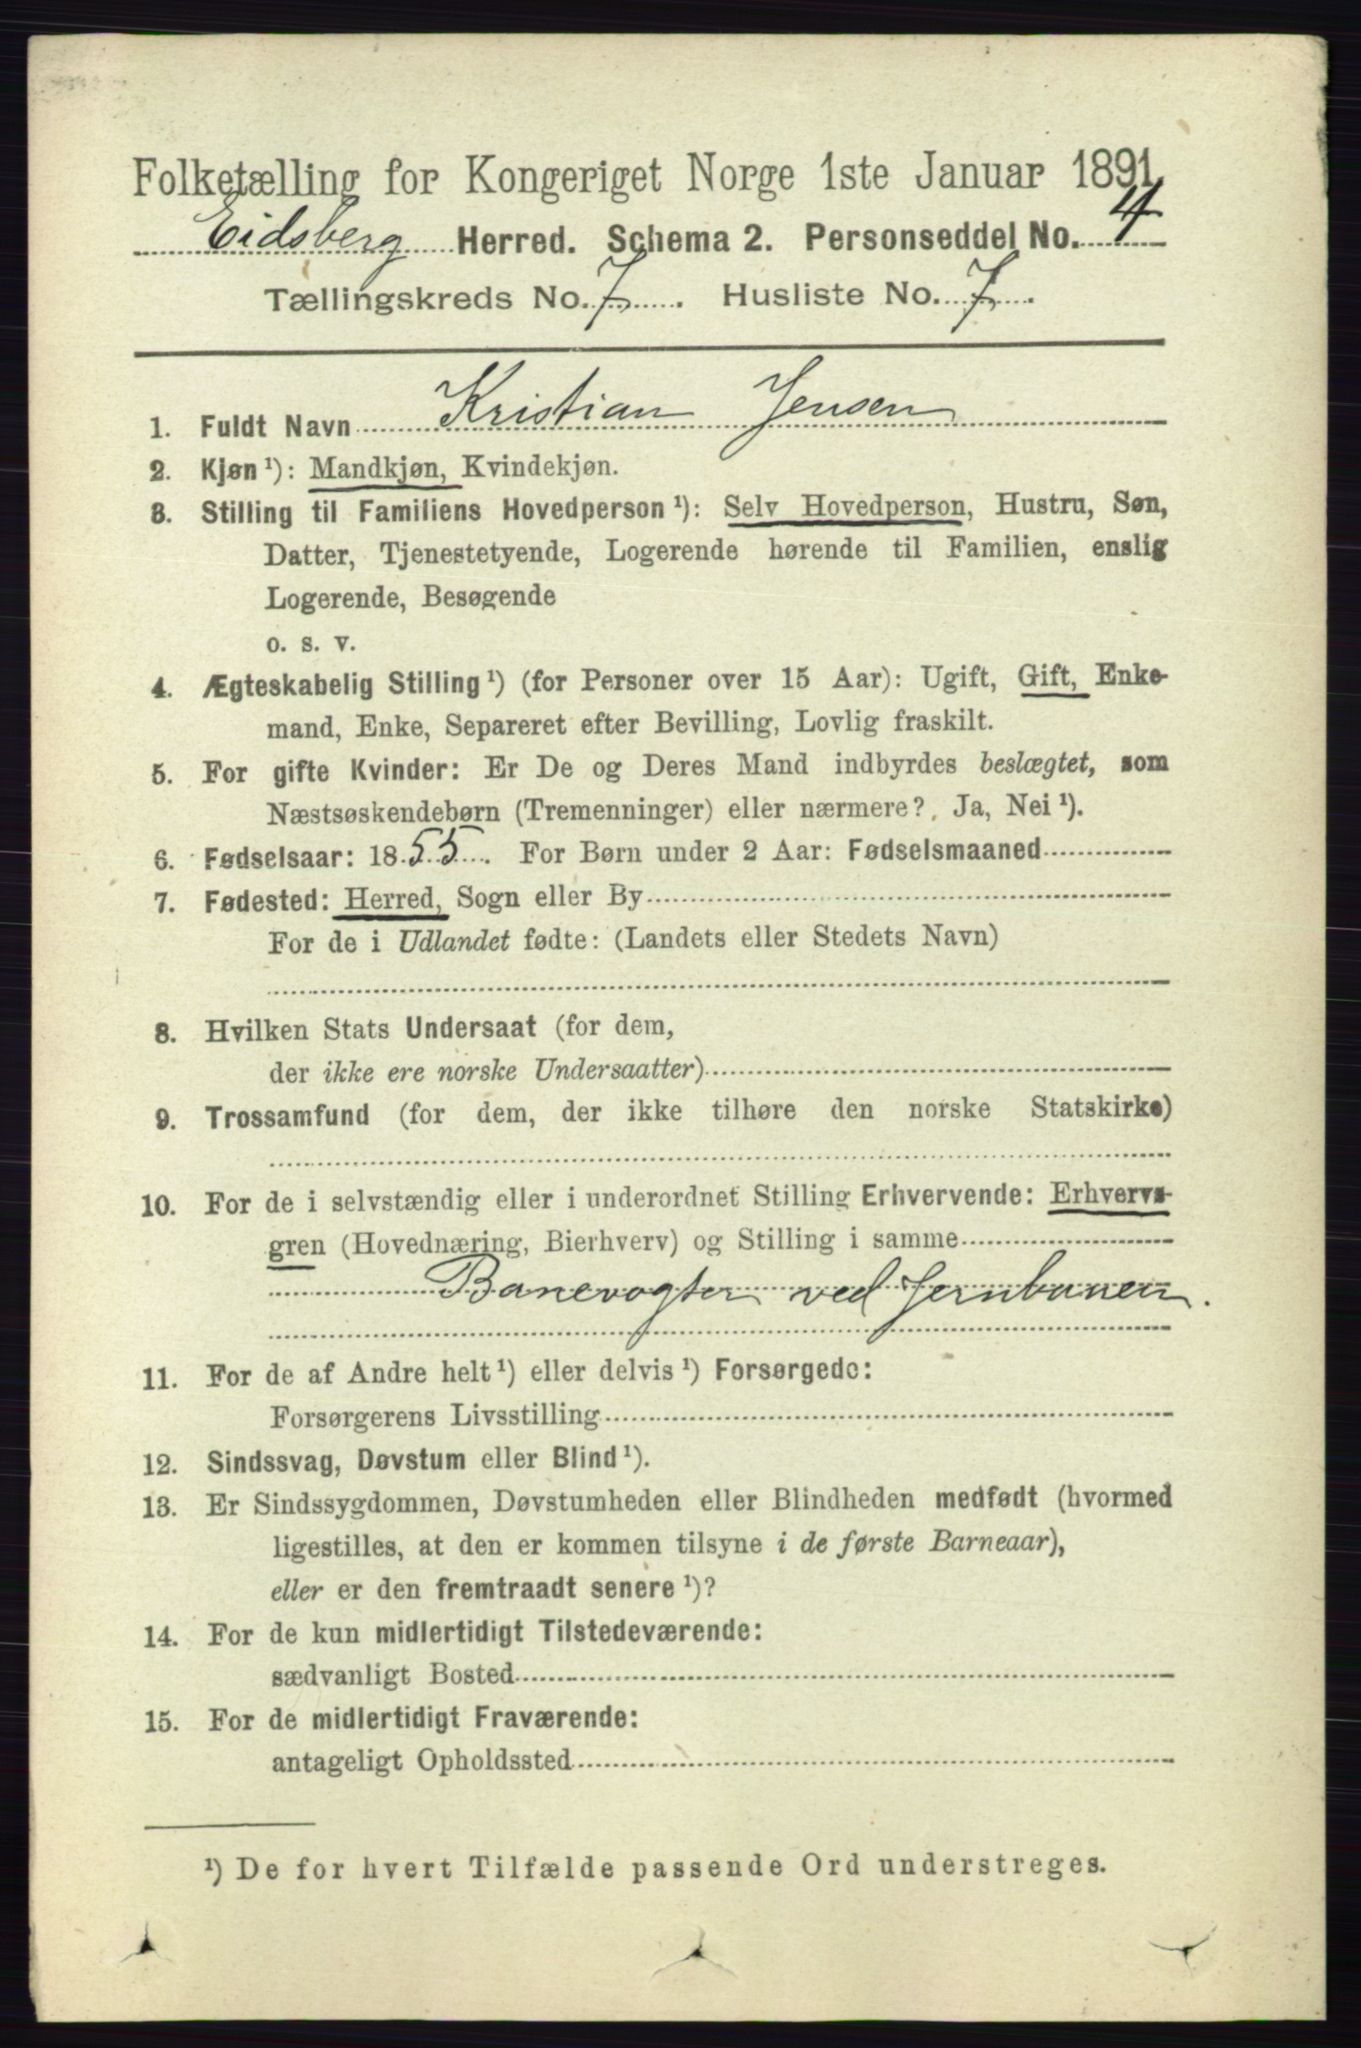 Folketælling for Kongeriget Norge 1ste Januar 1891.
Eidsberg Herred. Schema 2. Personseddel No. 4
Tællingskreds No. 7. Husliste No. 7.
1. Fuldt Navn Kristian Jensen
2. Kjøn ¹): Mandkjøn, Kvindekjøn.
3. Stilling til Familiens Hovedperson ¹): Selv Hovedperson, Hustru, Søn,
Datter, Tjenestetyende, Logerende hørende til Familien, enslig
Logerende, Besøgende
o. s. v.
4. Ægteskabelig Stilling ¹) (for Personer over 15 Aar): Ugift, Gift, Enke-
mand, Enke, Separeret efter Bevilling, Lovlig fraskilt.
5. For gifte Kvinder: Er De og Deres Mand indbyrdes beslægtet, som
Næstsøskendebørn (Tremenninger) eller nærmere? Ja, Nei ¹).
6. Fødselsaar: 1855. For Børn under 2 Aar: Fødselsmaaned
7. Fødested: Herred, Sogn eller By
For de i Udlandet fødte: (Landets eller Stedets Navn)
8. Hvilken Stats Undersaat (for dem,
der ikke ere norske Undersaatter)
9. Trossamfund (for dem, der ikke tilhøre den norske Statskirke)
10. For de i selvstændig eller i underordnet Stilling Erhvervende: Erhvervs-
gren (Hovednæring, Bierhverv) og Stilling i samme
Banevogter ved Jernbanen.
11. For de af Andre helt ¹) eller delvis ¹) Forsørgede:
Forsørgerens Livsstilling
12. Sindssvag, Døvstum eller Blind ¹).
13. Er Sindssygdommen, Døvstumheden eller Blindheden medfødt (hvormed
ligestilles, at den er kommen tilsyne i de første Barneaar),
eller er den fremtraadt senere ¹)?
14. For de kun midlertidigt Tilstedeværende:
sædvanligt Bosted
15. For de midlertidigt Fraværende:
antageligt Opholdssted
¹) De for hvert Tilfælde passende Ord understreges.